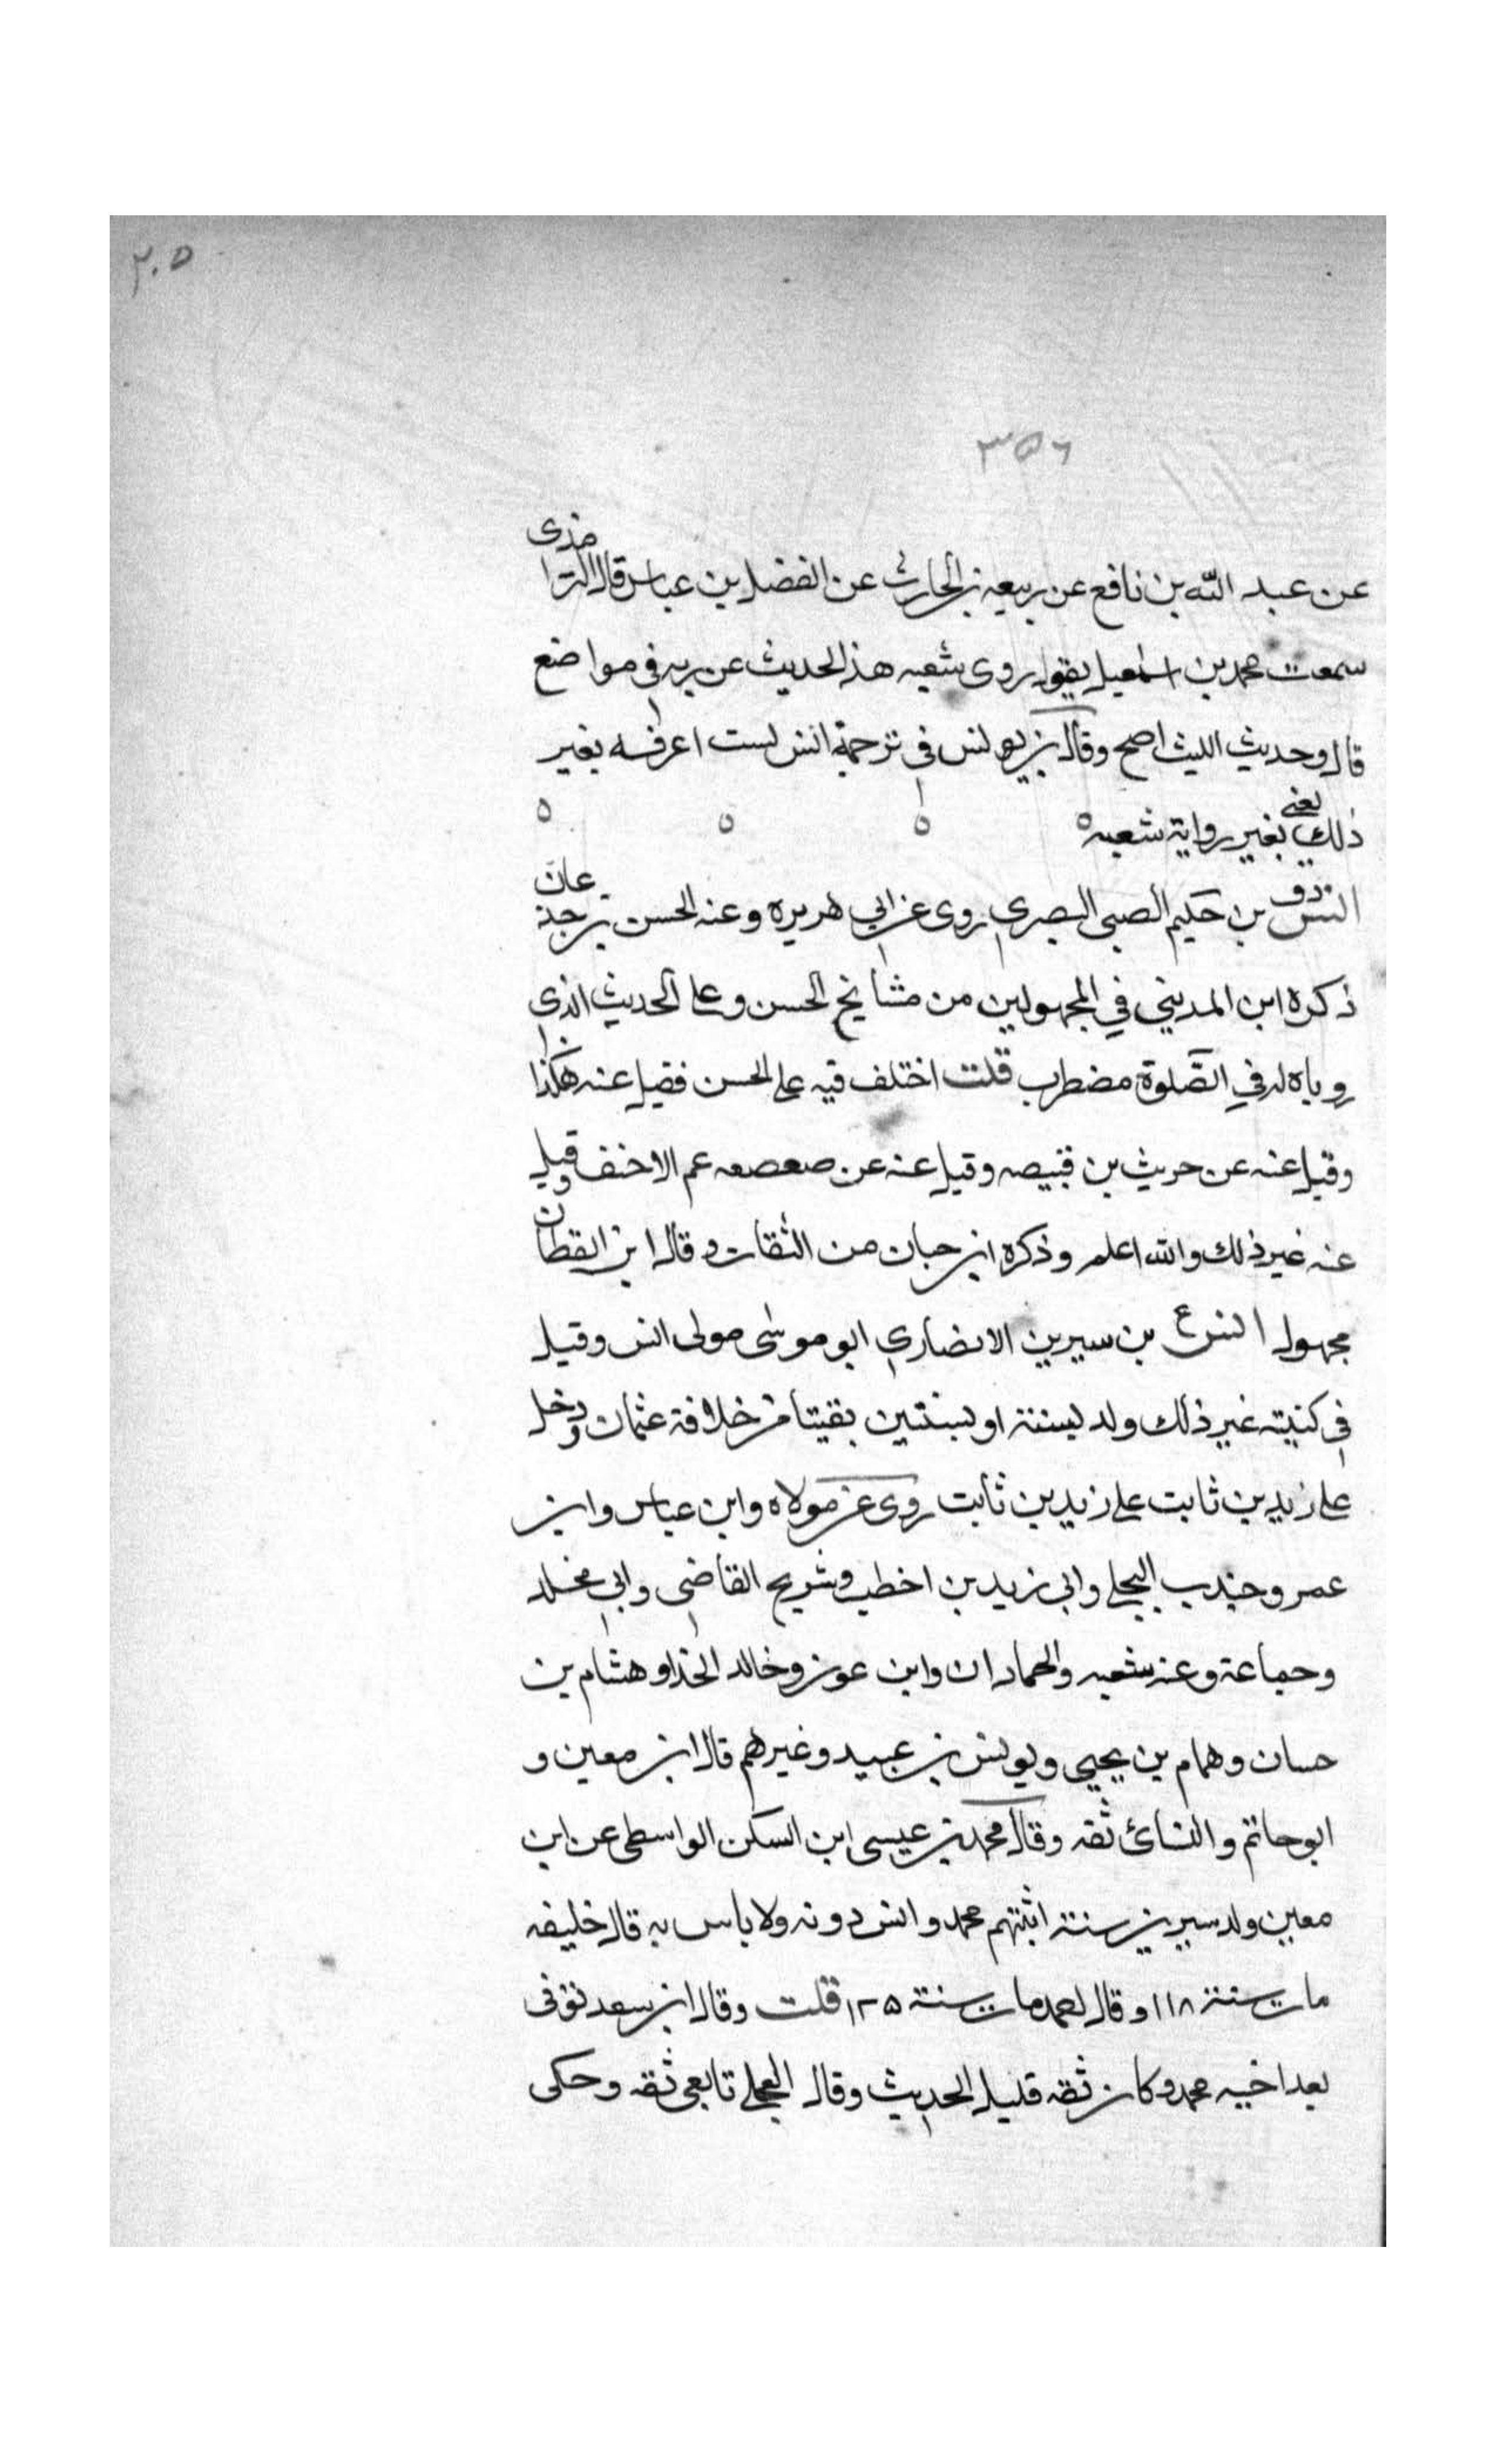 ٢٠٥
٣٥٦
عن عبد الله بن نافع عن ربيعه بن الحارث عن الفضل بن عباس قال الترمذى
سمعت محمد بن اسمعيل يقول روى شعبه هذا الحديث عن ربه فى مواضع
قال وحديث الليث اصح وقال بن يونس فى ترجمة انس لست اعرفه بغير
ذلك يعنى بغير رواية شعبه
انس دق بن حكيم الضبى البصرى روى عن ابى هريره وعنه الحسن بن جدعان
ذكره ابن المدينى فى المجهولين من مشايخ الحسن وعلى الحديث الذى
روياه له فى الصلوة مضطرب قلت اختلف فيه على الحسن فقيل عنه هكذا
وقيل عنه عن حريث بن قبيصه وقيل عنه عن صعصعه عم الاحنف وقيل
عنه غير ذلك والله اعلم وذكره ابن حبان من الثقات وقال ابن القطان
مجهول انس ع بن سيرين الانصارى ابو موسى مولى انس وقيل
فى كنيته غير ذلك ولد لسنة او لسنتين بقيتا من خلافة عثمان ودخل
على زيد بن ثابت على زيد بن ثابت روى عن مولاه وابن عباس وابن
عمر وجندب البجلى وابى زيد بن اخطب وشريح القاضى وابى مخلد
وجماعة وعنه شعبه والحمادان وابن عون وخالد الحذا وهشام بن
حسان وهمام بن يحيى ويونس بن عبيد وغيرهم قال ابن معين و
ابو حاتم والنسائ ثقه وقال محمد بن عيسى ابن السكن الواسطى عن ابن
معين ولد سيرين ستة اثبتهم محمد وانس دونه ولا باس به قال خليفه
مات سنة ١١٨ وقال احمد مات سنة ١٢٥ قلت وقال ابن سعد توفى
بعد اخيه محمد وكان ثقه قليل الحديث وقال العجلى تابعى ثقه وحكى